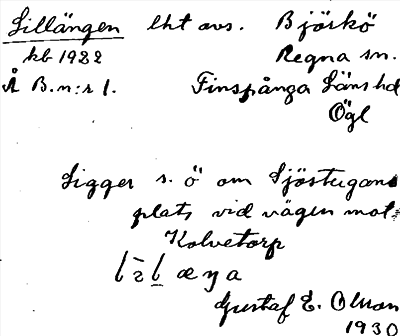 Lillängen lht avs. Björkö
kb 1922 Regna sn.
Å B.n:r 1. Finspånga Länshd
Ögl
Ligger s. ö om Sjöstugans
plats vid vägen mot
Kolvetorp
Gustaf E. Olsson
1930